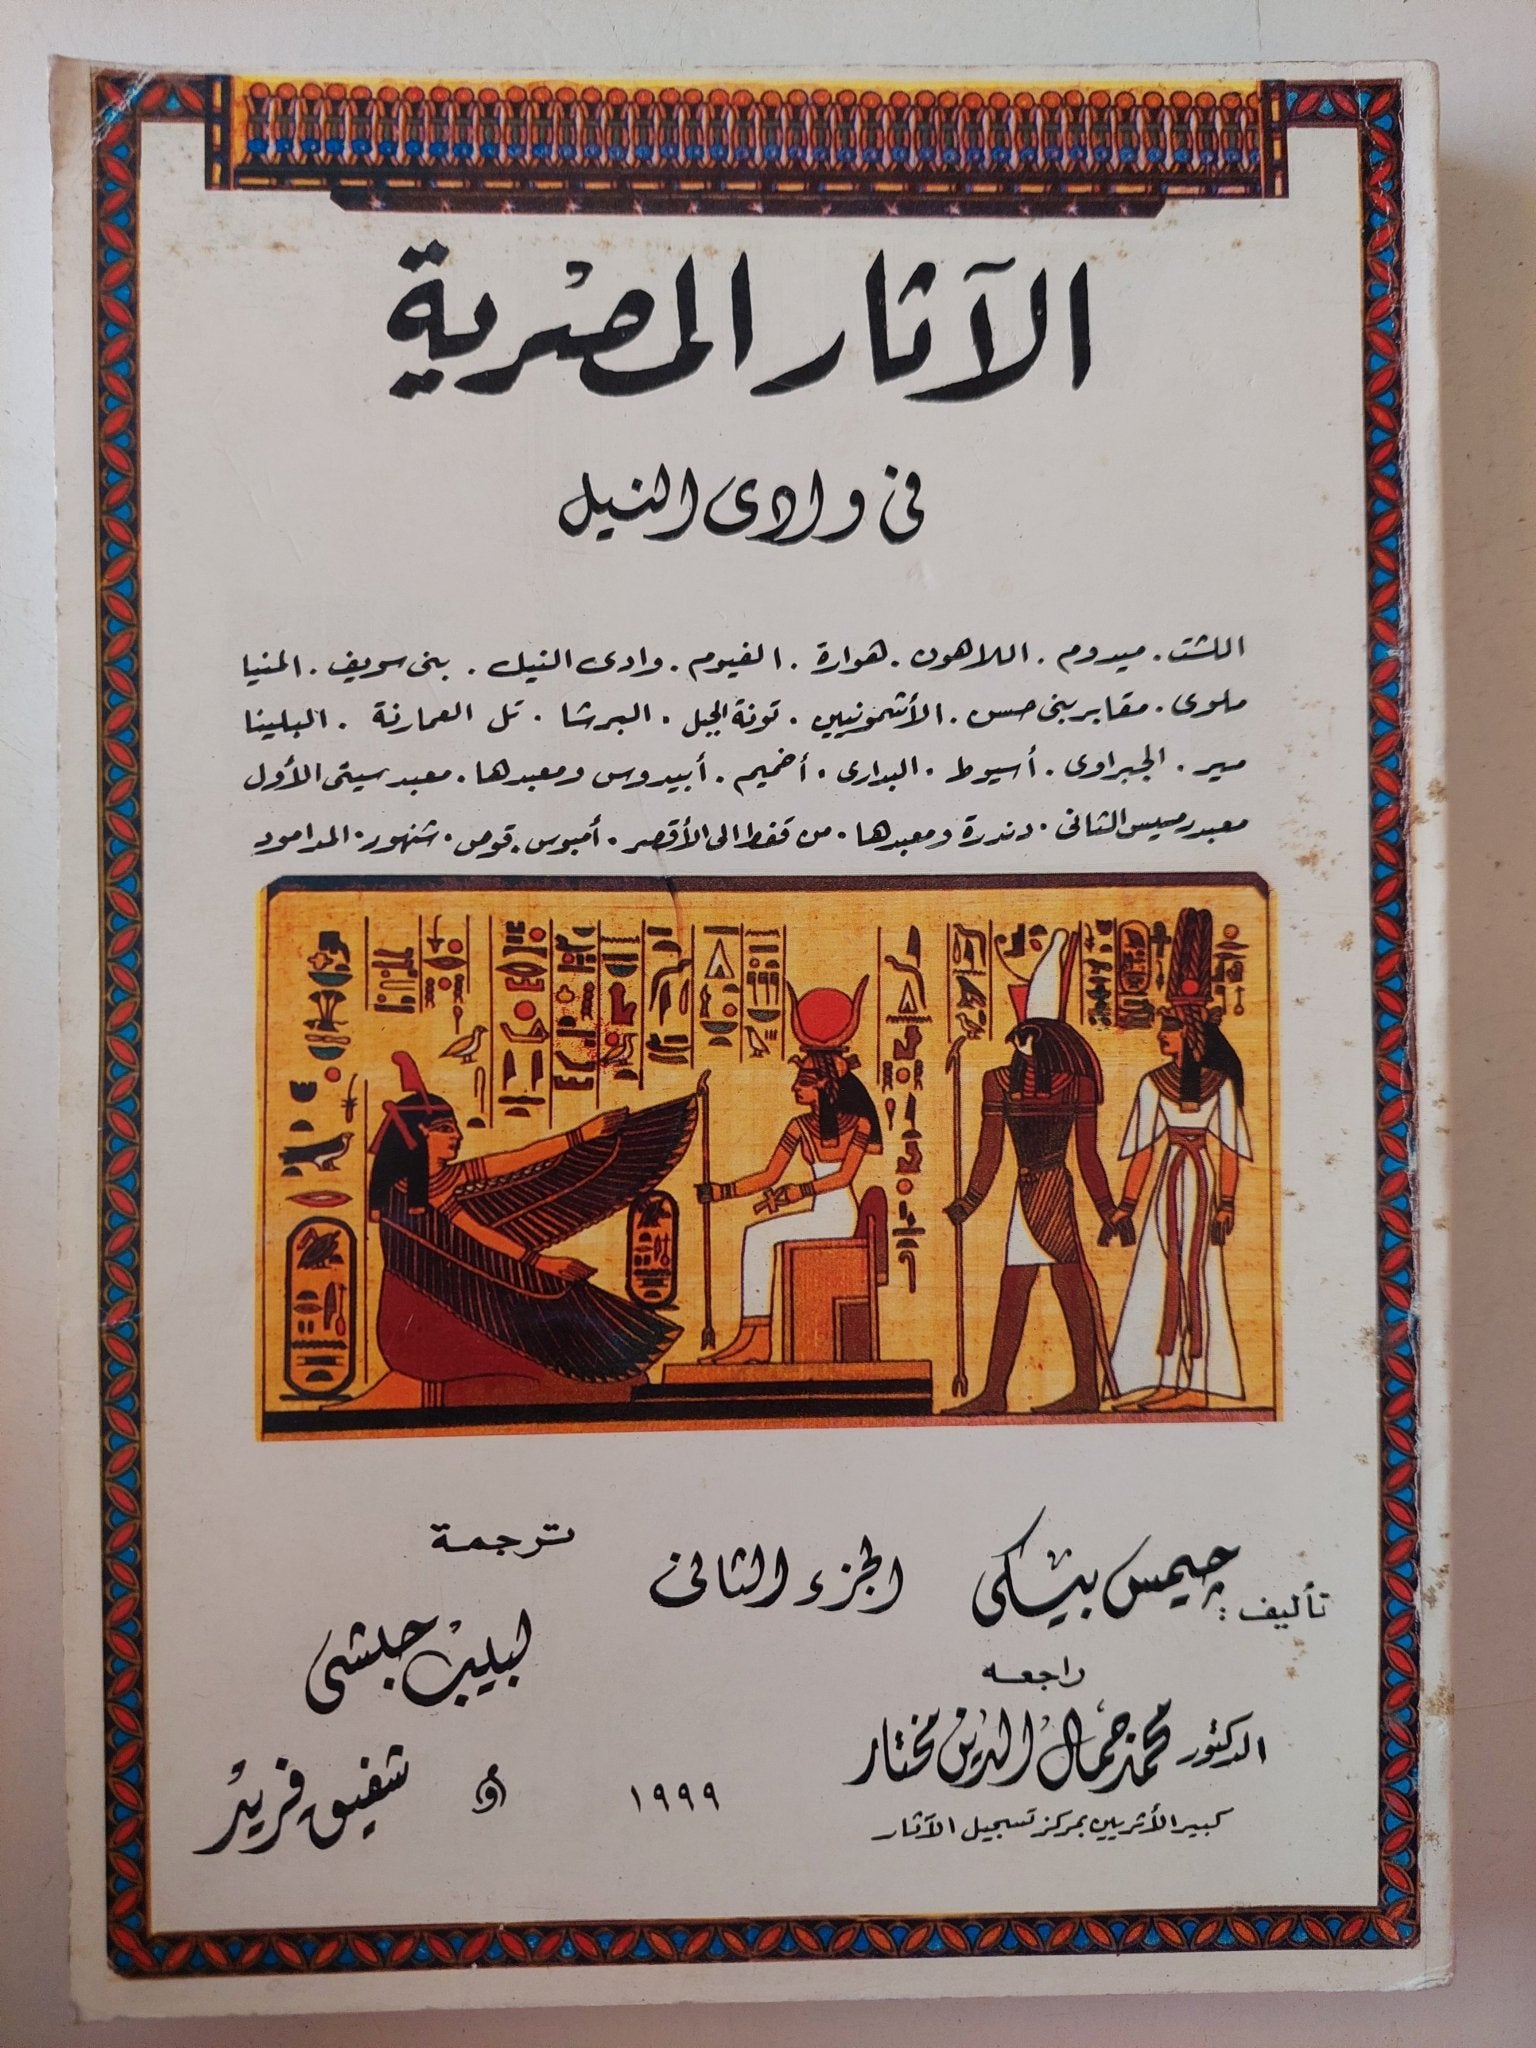 الآثار المصرية
فى وادى النيل
اللشت . ميدوم . اللاهون . هوارة . الفيوم . وادى النيل . بنى سويف . المنيا
ملوى . مقابر بنى حسن . الأشمونيين . تونة الجبل . البرشا . تل العمارنة . البلينا
مير . الجبراوى . أسيوط . البدارى . أخميم . أبيدوس ومعبدها . معبد سيتى الأول
معبد رمسيس الثانى . دندرة ومعبدها . من قفط الى الأقصر . أمبوس . قوص . شنهور . المدامود
تأليف : چيمس بيكى
الجزء الثانى
ترجمة
لبيب حبشى
و
شفيق فريد
راجعه
الدكتور محمد جمال الدين مختار
كبير الأثريين بمركز تسجيل الآثار
١٩٩٩